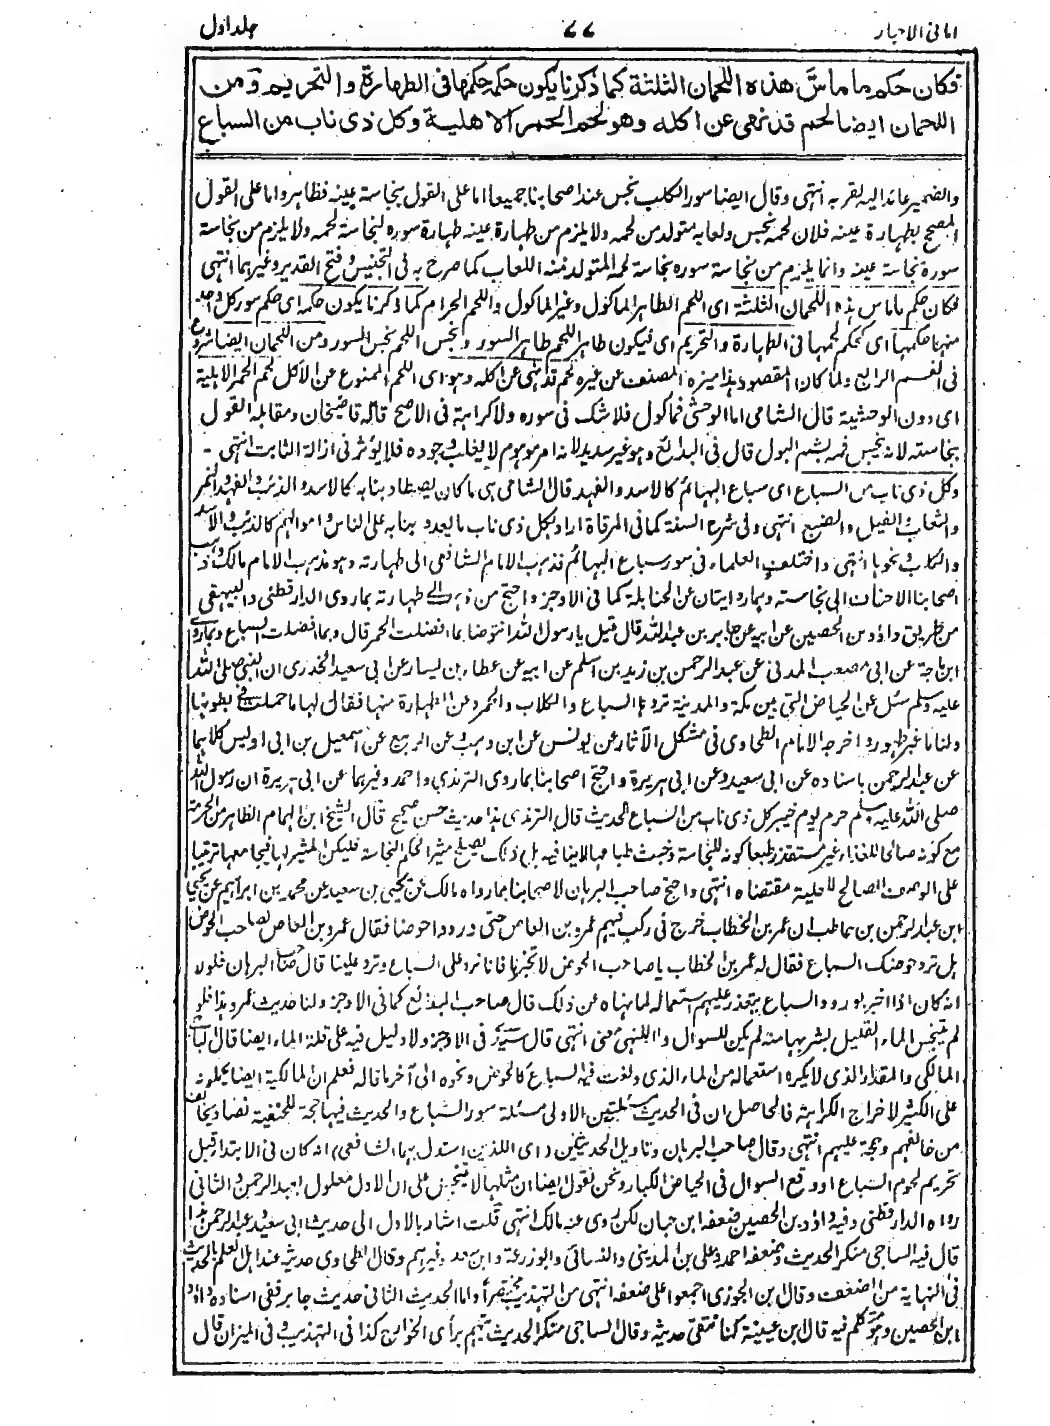 امانی الاحبار ۷۷ جلد اول
فكان حكم ما ماسَّ هذه اللحمان الثلثة كما ذكرنا يكون حكمه حكمها فى الطهارة والتحريم ومن
اللحمان ايضا لحم قد نهى عن اكله وهو لحم الحمر الاهلية وكل ذى ناب من السباع
والضمير عائدا اليه بقربه انتهى وقال ايضا سور الكلب نجس عند اصحابنا جميعا اما على القول بنجاسة عينه فظاهر واما على القول
المصحح بطهارة عينه فلان لحمه نجس ولعابه متولد من لحمه ولا يلزم من طهارة عينه طهارة سوره لنجاسة لحمه ولا يلزم من نجاسة
سوره نجاسة عينه وانما يلزم من نجاسة سوره نجاسة لحمه المتولد منه اللعاب كما صرح به فى التجنيس وفتح القدير وغيرهما انتهى
فكان حكم ما ماس هذه اللحمان الثلثة اى اللحم الطاهر الماكول وغير الماكول واللحم الحرام كما ذكرنا يكون حكمه اى حكم سور كل واحد
منها حكمها اى كحكم لحمها فى الطهارة والتحريم اى فيكون طاهر اللحم طاهر السور ونجس اللحم نجس السور ومن اللحمان ايضا شروع
فى القسم الرابع ولما كان المقصود هذا ميزه المصنف عن غيره لحم قد نهى عن اكله وهو اى اللحم الممنوع عن الاكل لحم الحمر الاهلية
اى دون الوحشية قال الشامى اما الوحشى فماكول فلا شك فى سوره ولا كراهة فى الاصح قاله قاضيخان ومقابله القول
بنجاسته لانه ينجس فمه بشم البول قال فى البدائع وهو غير سديد لانه امر موهوم لا يغلب وجوده فلا يؤثر فى ازالة الثابت انتهى -
وكل ذى ناب من السباع اى سباع البهائم كالاسد والفهد قال الشامى هى ما كان يصطاد بنابه كالاسد والذئب والفهد والنمر
والثعلب والفيل والضبع انتهى وفى شرح السنة كما فى المرقاة اراد بكل ذى ناب ما يعدو بنابه على الناس واموالهم كالذئب والاسد
والكلب ونحوها انتهى واختلف العلماء فى سور سباع البهائم فذهب الامام الشافعى الى طهارته وهو مذهب الامام مالك وذهب
اصحابنا الاحناف الى نجاسته وهما روايتان عن الحنابلة كما فى الاوجز واحتج من ذهب الى طهارته بما روى الدارقطنى والبيهقى
من طريق داؤد بن الحصين عن ابيه عن جابر بن عبد الله قال قيل يا رسول الله انتوضا بما افضلت الحمر قال وبما افضلت السباع وبما روى
ابن ماجة عن ابى مصعب المدنى عن عبد الرحمن بن زيد بن اسلم عن ابيه عن عطاء بن يسار عن ابى سعيد الخدرى ان النبى صلى الله
عليه وسلم سئل عن الحياض التى بين مكة والمدينة تردها السباع والكلاب والحمر وعن الطهارة منها فقال لها ما حملت فى بطونها
ولنا ما غبر طهور واخرجه الامام الطحاوى فى مشكل الآثار عن يونس عن ابن وهب وعن الربيع عن اسمعيل بن ابى اويس كلاهما
عن عبد الرحمن باسناده عن ابى سعيد وعن ابى هريرة واحتج اصحابنا بما روى الترمذى واحمد وغيرهما عن ابى هريرة ان رسول الله
صلى الله عليه وسلم حرم يوم خيبر كل ذى ناب من السباع الحديث قال الترمذى هذا حديث حسن صحيح قال الشيخ ابن الهمام الظاهر من الحرمة
مع كونه صالحا للغذاء غير مستقذر طبعا كونه للنجاسة وخبث طباعها لا ينافيه بل ذلك يصلح مثيرا لحكم النجاسة فليكن المثير لها فيجامعها ترتيبا
على الوصف الصالح للعلية مقتضاه انتهى واحتج صاحب البرهان لاصحابنا بما رواه مالك عن يحيى بن سعيد عن محمد بن ابراهيم عن يحيى
ابن عبد الرحمن بن حاطب ان عمر بن الخطاب خرج فى ركب فيهم عمرو بن العاص حتى وردوا حوضا فقال عمرو بن العاص لصاحب الحوض
هل ترد حوضك السباع فقال له عمر بن الخطاب يا صاحب الحوض لا تخبرنا فانا نرد على السباع وترد علينا قال صاحب البرهان فلولا
انه كان اذا اخبر بورود السباع يتعذر عليهم استعماله لما نهاه عن ذلك قال صاحب البدائع كما فى الاوجز ولنا حديث عمر وبهذا فلو
لم يتنجس الماء القليل بشربها منه لم يكن للسوال ولا للنهى معنى انتهى قال فى الاوجز ولا دليل فيه على قلة الماء ايضا قال الباجى
المالكى والمقدار الذى لا يكره استعماله من الماء الذى ولغت فيه السباع كالحوض ونحوه الى آخر ما قاله فعلم ان المالكية ايضا يحملونه
على الكثير لاخراج الكراهة فالحاصل ان فى الحديث مسئلتين الاولى مسئلة سور السباع والحديث فيها حجة للحنفية نصا وبخالف
من خالفهم وحجة عليهم انتهى وقال صاحب البرهان وتاويل الحديثين (اى اللذين استدل بهما الشافعى) انه كان فى الابتداء قبل
تحريم لحوم السباع او وقع السوال فى الحياض الكبار ونحن نقول ايضا ان مثلها لا يتنجس على ان الاول معلول بعبد الرحمن والثانى
رواه الدارقطنى وفيه داؤد بن الحصين ضعفه ابن حبان لكن روى عنه مالك انتهى قلت اشار بالاول الى حديث ابى سعيد وعبد الرحمن هذا
قال فيه الساجى منكر الحديث وضعفه احمد وعلى بن المدينى والنسائى وابو زرعة وابن سعد وغيرهم وقال الطحاوى حديثه عند اهل العلم بالحديث
فى النهاية من الضعف وقال ابن الجوزى اجمعوا على ضعفه انتهى من التهذيب مختصرا واما الحديث الثانى حديث جابر ففى اسناده داؤد
ابن الحصين وهو متكلم فيه قال ابن عيينة كنا نتقى حديثه وقال الساجى منكر الحديث يتهم برأى الخوارج كذا فى التهذيب وفى الميزان قال